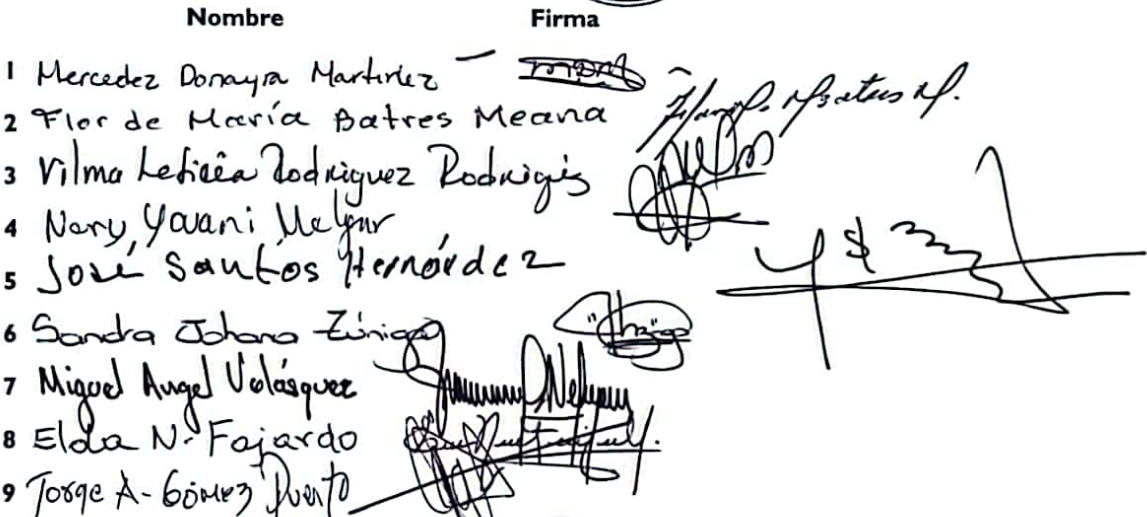 Nombre Firma
1 Mercedez Donayra Martinez
2 Flor de María Batres Meana
3 Vilma Leticia Rodriguez Rodrigués
4 Nery Yovani Melgar
5 José Santos Hernández
6 Sandra Johana Zúniga
7 Miguel Angel Velásquez
8 Elda N. Fajardo
9 Jorge A- Gómez Puerto